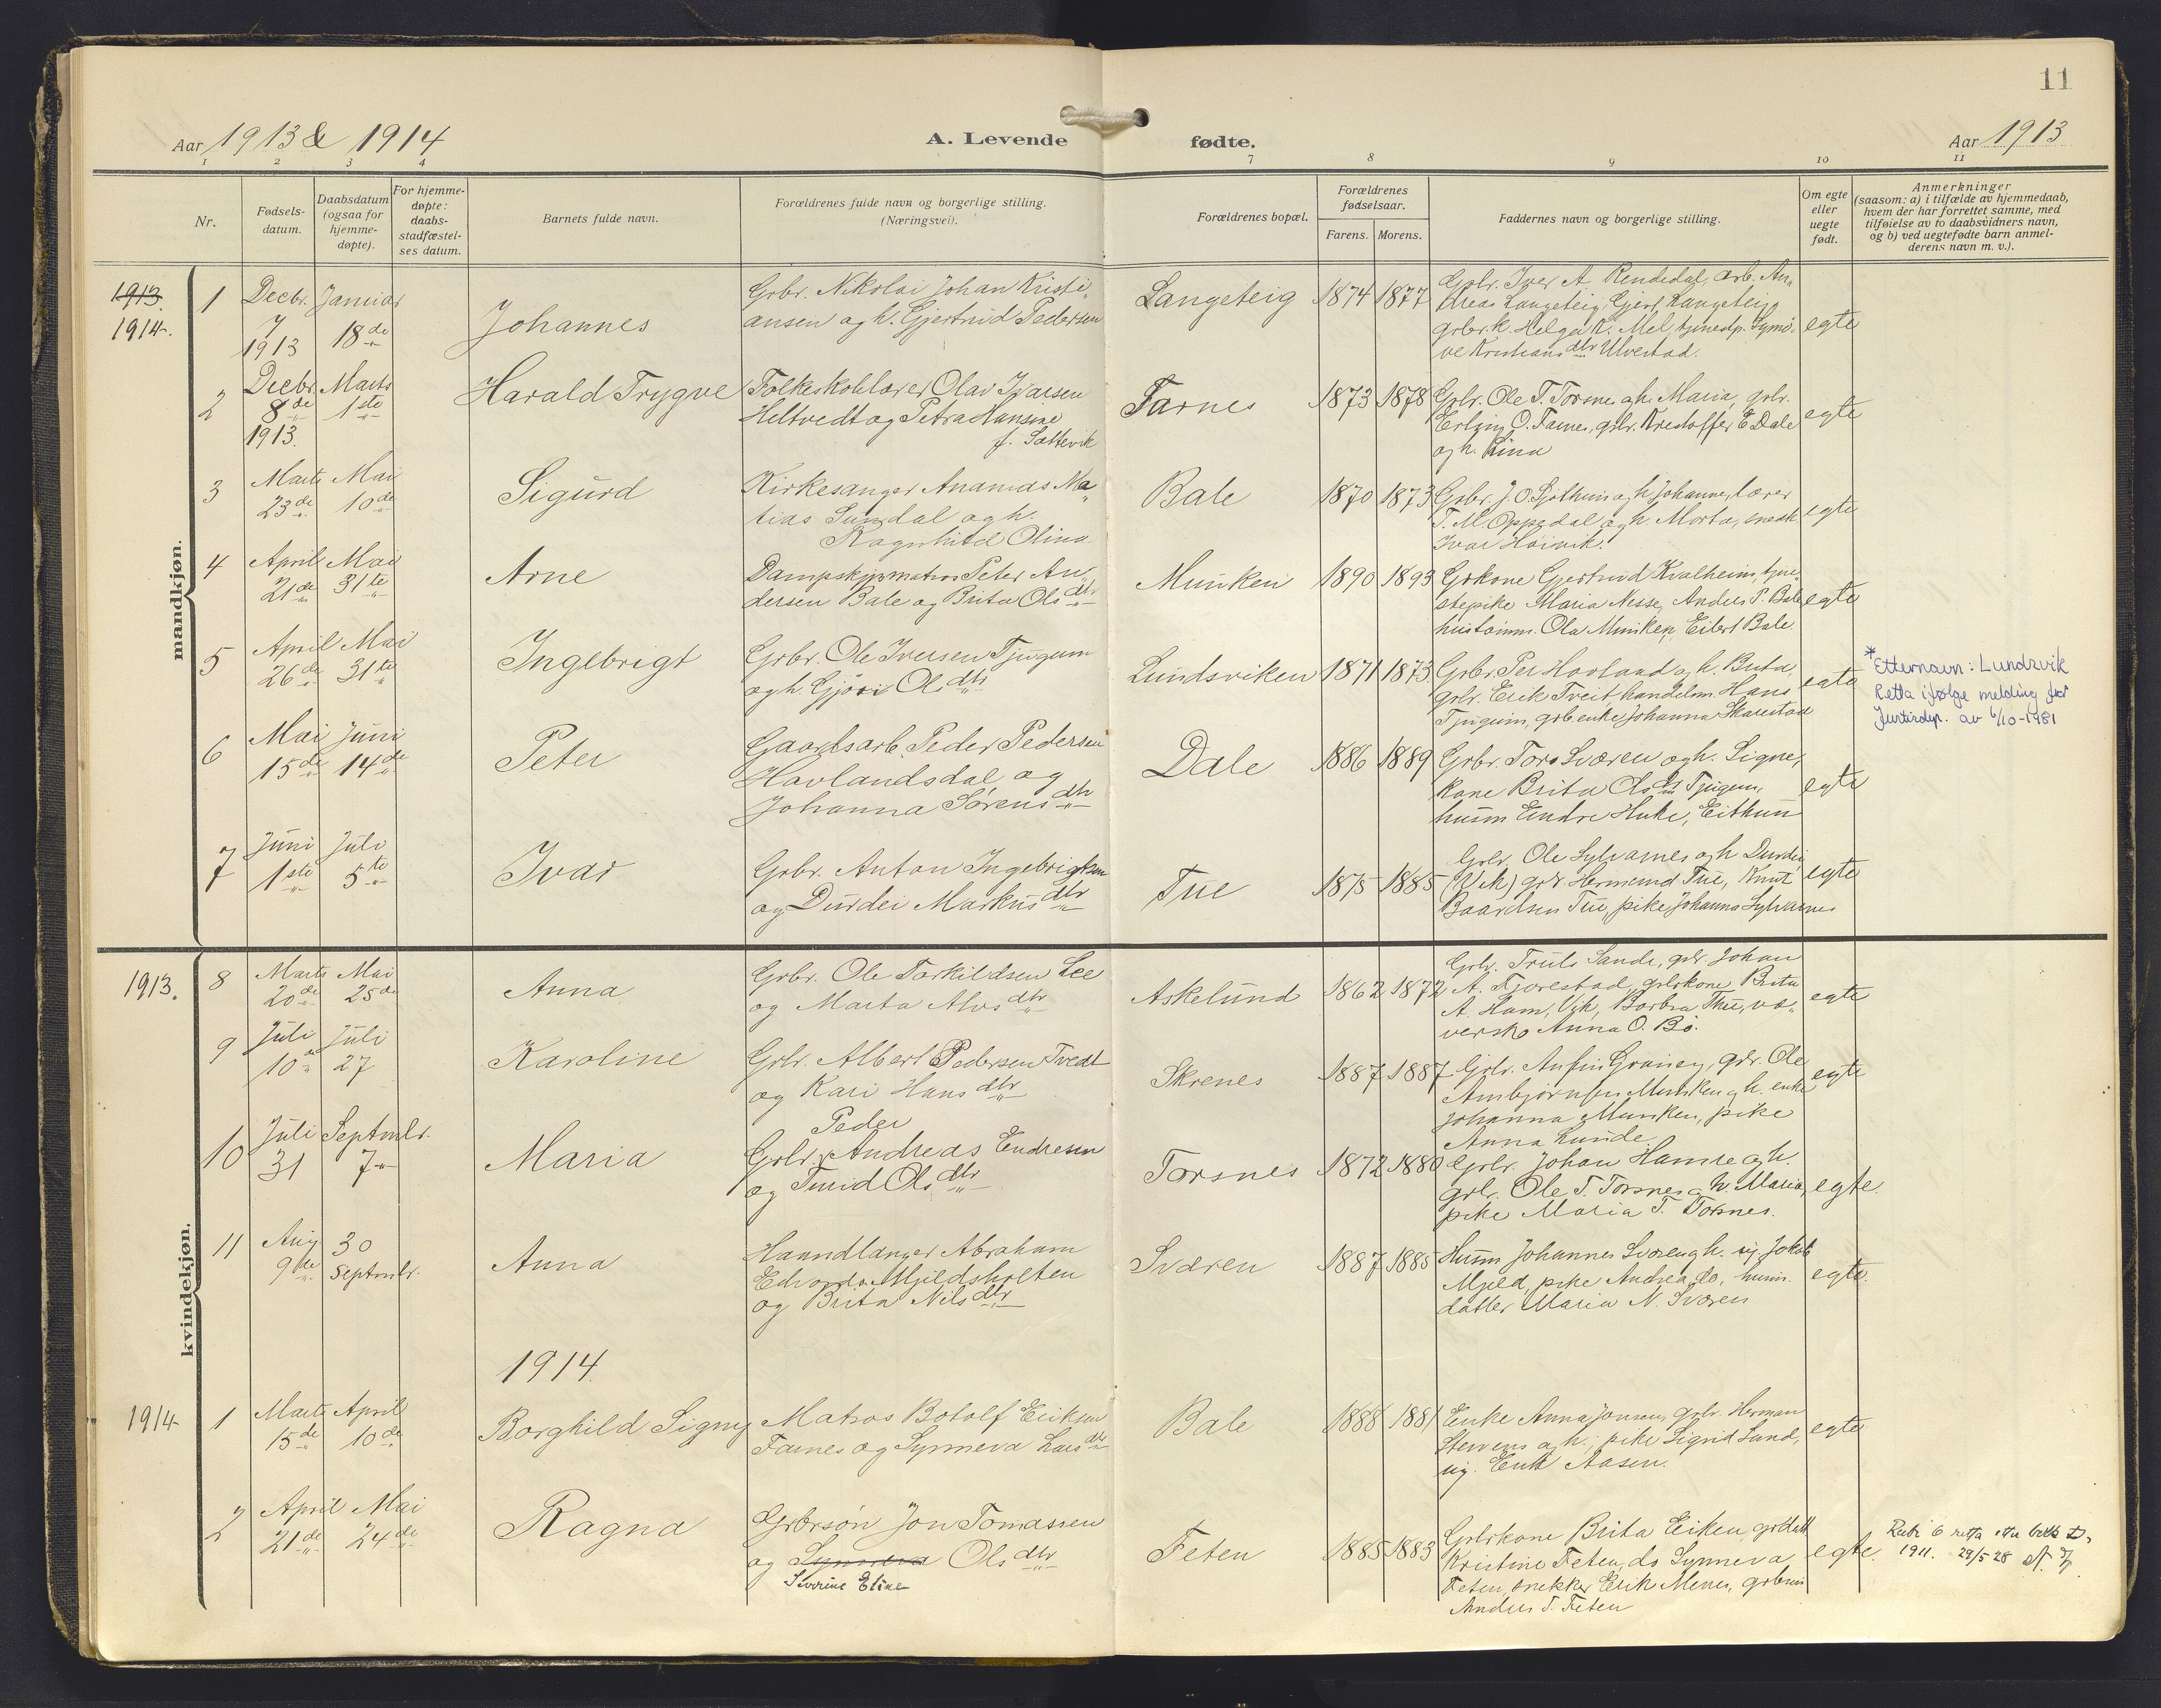 11
Aar 1913 & 1914
A. Levende fødte.
Aar 1913
1 2 3 4 7 8 9 10 11
Nr.
Fødsels-
datum.
Daabsdatum
(ogsaa for
hjemme-
døpte).
For hjemme-
døpte:
daabs-
stadfæstel-
ses datum.
Barnets fulde navn.
Forældrenes fulde navn og borgerlige stilling.
(Næringsvei).
Forældrenes bopæl.
Forældrenes
fødselsaar.
Farens. Morens.
Faddernes navn og borgerlige stilling.
Om egte
eller
uegte
født.
Anmerkninger
(saasom: a) i tilfælde av hjemmedaab,
hvem der har forrettet samme, med
tilføielse av to daabsvidners navn,
og b) ved uegtefødte barn anmel-
derens navn m. v.).
mandkjøn.
1913.
1914.
1
Decbr. 7 1913
Januar 18de
Johannes
Grbr. Nikolai Johan Kristi-
ansen og h. Gjertrud Pedersen
Langeteig
1874 1877
Grbr. Iver A. Rendedal, arb. An-
dreas Langeteig, Gjert Langeteig
grbr.k. Helga K. Mel, tjenestp. Synnø-
ve Kristians dtr Ulvestad.
egte
2
Decbr. 8de 1913.
Marts 1ste
Harald Trygve
Folkeskolelærer Olav Ivarsen
Heltvedt og Petra Hansine
f. Sættevik
Farnes
1873 1878
Grbr. Ole T. Torsnes og h. Maria, grbr.
Erling O. Farnes, grbr. Kristoffer E. Dale
og h. Lina
egte
3
Marts 23de
Mai 10de
Sigurd
Kirkesanger Ananias Ma-
tias Sundal og h.
Ragnhild Olina
Bale
1870 1873
Grbr. J. O. Sjøthun og h. Johanne, lærer
T. M. Oppedal og h. Marta, snedk.
Ivar Høivik.
egte
4
April 21de
Mai 31te
Arne
Dampskipsmatros Peter An-
dersen Bale og Brita Ols dtr
Munken
1890 1893
Grkone Gjertrud Kvalheim, tjene-
stepike Maria Nesse, Anders P. Bale
hustømm. Ola Munken, Eilert Bale
egte
5
April 26de
Mai 31te
Ingebrigt
Grbr. Ole Iversen Tjugum
og h. Gjøri Ols dtr
Lundsviken
1871 1873
Grbr. Per Hovland og h. Brita,
grbr. Erik Tveit, handelsm. Hans
Tjugum, grb.enke Johanna Skarestad
egte
* Etternavn: Lundsvik
Retta ifølge melding fra
Justisdep. av 6/10-1981
6
Mai 15de
Juni 14de
Peter
Gaardsarb. Peder Pedersen
Havlandsdal og
Johanna Sørens dtr
Dale
1886 1889
Grbr. Tore Sværen og h. Signe,
kone Brita Ols dtr Tjugum,
husm Endre Huke, Eithun
egte
7
Juni 1ste
Juli 5te
Ivar
Grbr. Anton Ingebrigtsen
og Durdei Markus dtr
Tue
1875 1885
Grbr. Ole Sylvarnes og h. Durdei
(Vik) grbr. Hermund Tue, Knut
Baardsen Tue, pike Johanna Sylvarnes
egte
kvindekjøn.
1913.
8
Marts 20de
Mai 25de
Anna
Grbr. Ole Torkildsen Lee
og Marta Alvs dtr
Askelund
1862 1872
Grbr. Truls Sande, grbr. Johan
A. Fjørestad, grbrkone Brita
A. Ham, Vik, Barbra Thue, væ-
verske Anna O. Bø.
egte
9
Juli 10de
Juli 27
Karoline
Grbr. Albert Pedersen Tvedt
og Kari Hans dtr
Skrenes
1887 1887
Grbr. Anfin Grøneng, grbr. Ole
Ambjørnsen Munken og h. enke
Johanna Munken, pike
Anna Lunde.
egte
10
Juli 31
Septmbr. 7
Maria
Peder
Grbr. Andreas Endresen
og Turid Ols dtr
Torsnes
1872 1880
Grbr. Johan Hamre og h.
grbr. Ole T. Torsnes og h. Maria,
pike Maria T. Torsnes.
egte.
11
Aug 9de
30 Septmbr.
Anna
Haandlanger Abraham
Edvards. Mjeldsholten
og Brita Nils dtr
Sværen
1887 1885
Husm Johannes Sværen og h. ug. Jakob
Mjeld, pike Andrea do, husm.
datter Maria N. Sværen
egte.
1914.
1914
1
Marts 15de
April 10de
Borghild Signy
Matros Botolf Eriksen
Farnes og Synneva Lars dtr
Bale
1888 1881
Enke Anna Jonsen, grbr. Herman
Stevens og h.; pike Sigrid Lund,
ug. Erik Aasen.
egte
2
April 21de
Mai 24de
Ragna
Grbrsøn Jon Tomassen
og Synneva Ols dtr
Severine Eline
Feten
1885 1883
Grbrkone Brita Eiken, grdatt
Kristine Feten, do Synneva
Feten, snekker Erik Menes, grbrsøn
Anders T. Feten
egte.
Rubr 6 retta etter
1911. 29/5 28